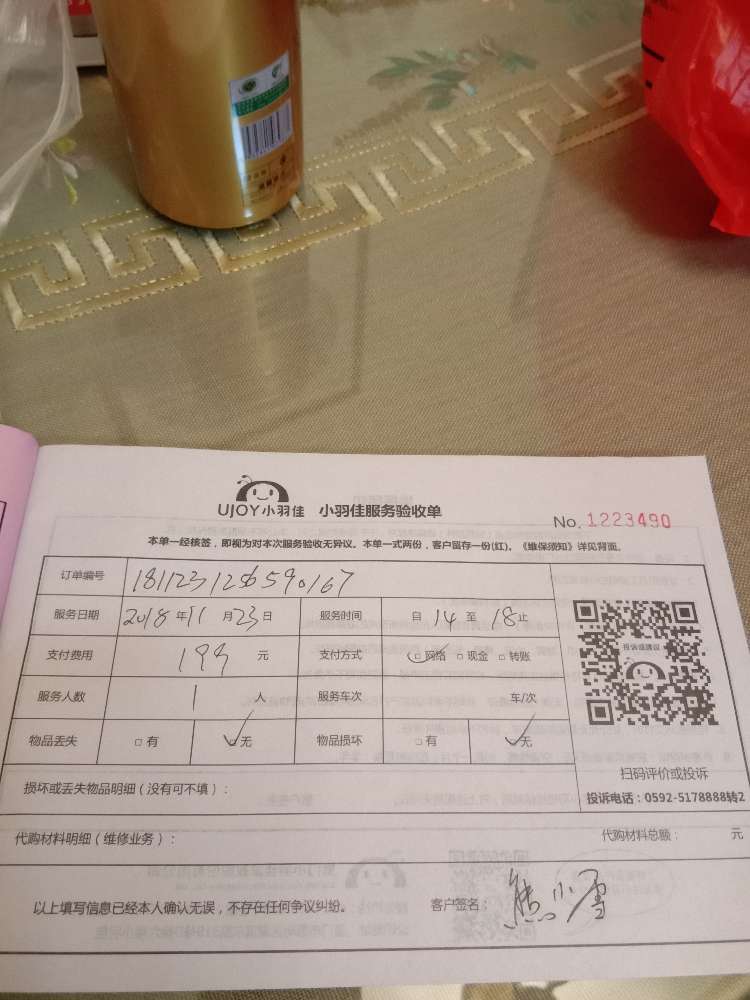 UJOY小羽佳 小羽佳服务验收单
No. 1223490
本单一经核签，即视为对本次服务验收无异议。本单一式两份，客户留存一份(红)。《维保须知》详见背面。
订单编号 1811231256590167
服务日期 2018年11月23日 服务时间 自14至18止
支付费用 199元 支付方式 ☑网络 □现金 □转账
服务人数 1人 服务车次 车/次
物品丢失 □有 ☑无 物品损坏 □有 ☑无
投诉或建议
扫码评价或投诉
投诉电话：0592-5178888转2
损坏或丢失物品明细（没有可不填）：
代购材料明细（维修业务）： 代购材料总额： 元
以上填写信息已经本人确认无误，不存在任何争议纠纷。 客户签名：熊小雪